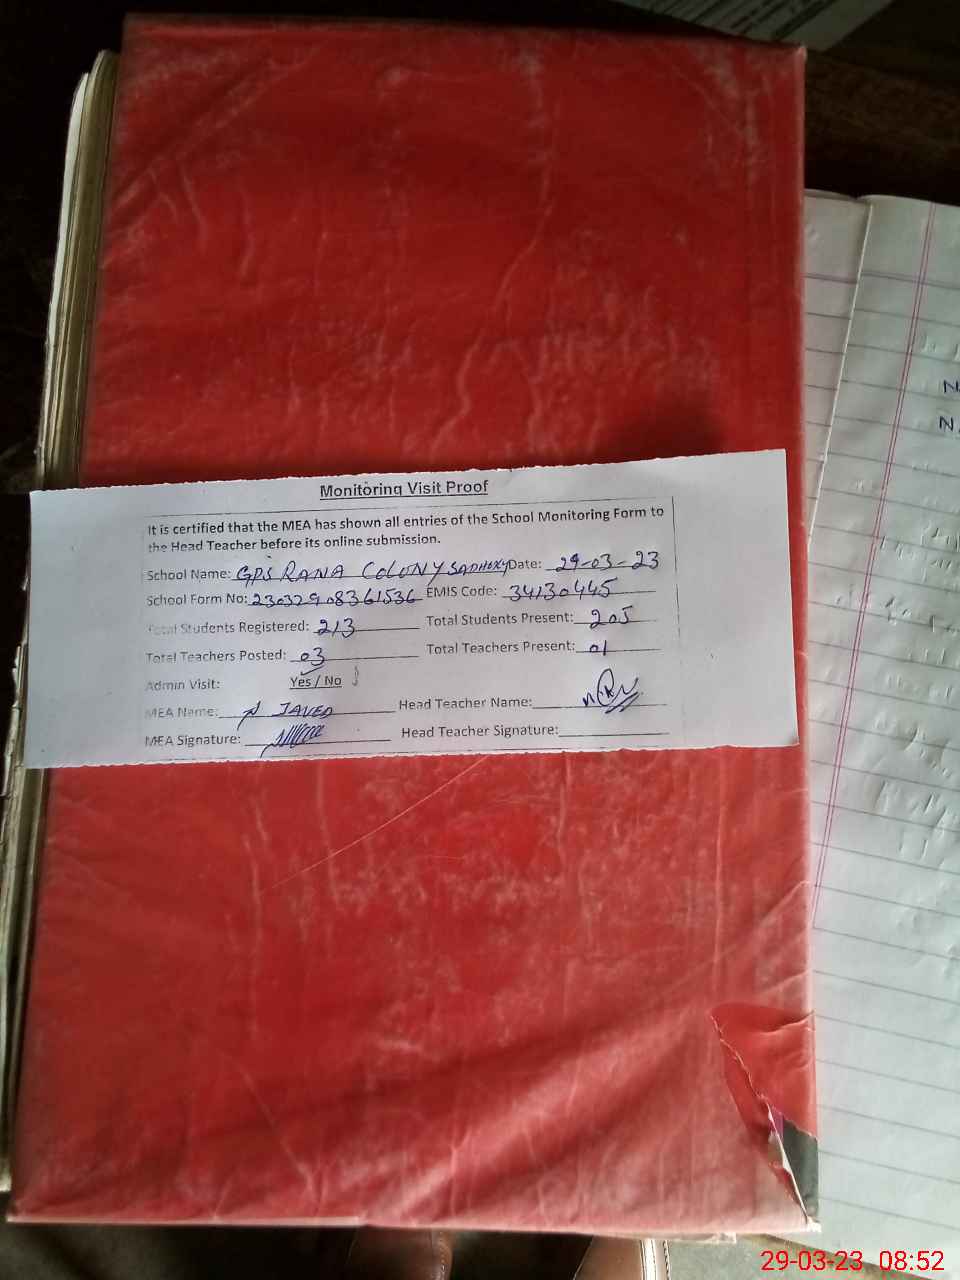 Monitoring Visit Proof
It is certified that the MEA has shown all entries of the School Monitoring Form to
the Head Teacher before its online submission.
School Name: GPS RANA COLONY SADHOKY Date: 29-03-23
School Form No: 23032908361536 EMIS Code: 34130445
Total Students Registered: 213 Total Students Present: 205
Total Teachers Posted: 03 Total Teachers Present: 01
Admin Visit: Yes / No
MEA Name: JAVED Head Teacher Name:
MEA Signature: Head Teacher Signature:
N
N.
29-03-23 08:52